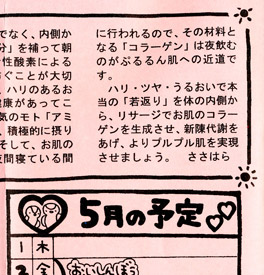 でなく、内側か
分」を補って朝
性酸素による
ぐことが大切
ハリのあるお
康があってこ
気のモト「アミ
、積極的に摂り
そして、お肌の
間寝ている間
に行われるので、その材料と
なる「コラーゲン」は夜飲む
のがぷるるん肌への近道で
す。
ハリ・ツヤ・うるおいで本
当の「若返り」を体の内側か
ら、リサージでお肌のコラー
ゲンを生成させ、新陳代謝を
あげ、よりプルプル肌を実現
させましょう。 ささはら
5月の予定
1 木
2 金 おいしんぼう